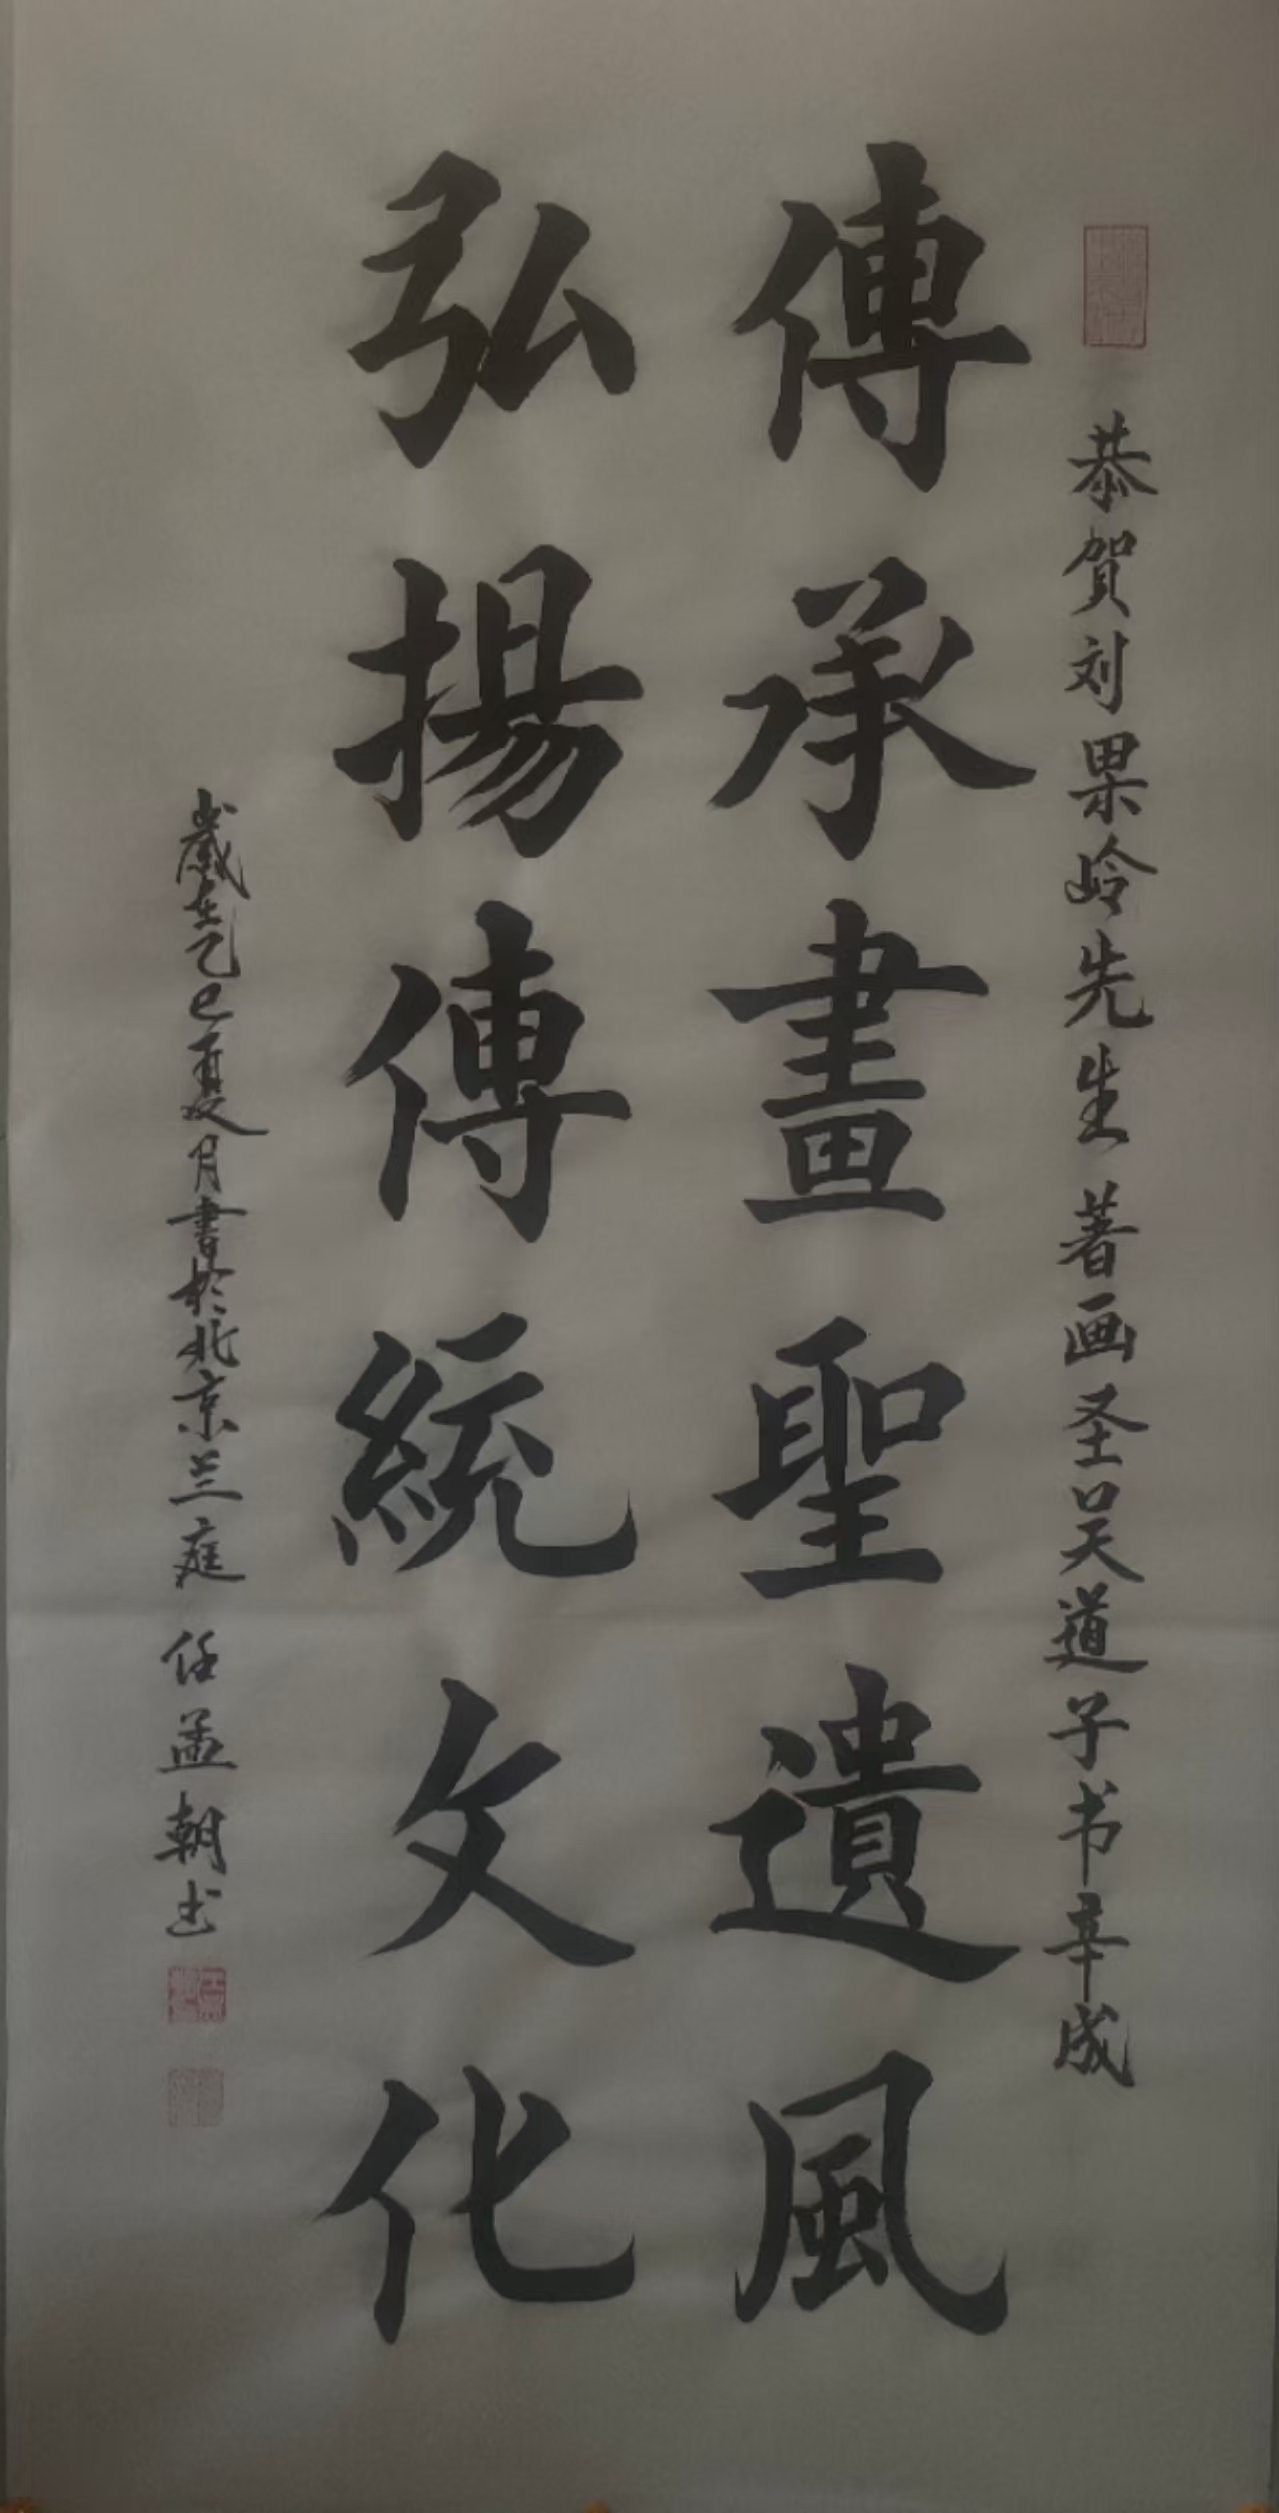 恭賀刘果岭先生著画圣吴道子书辛成
傳承畫聖遺風
弘揚傳統文化
歲在乙巳夏月書於北京兰庭任孟朝书